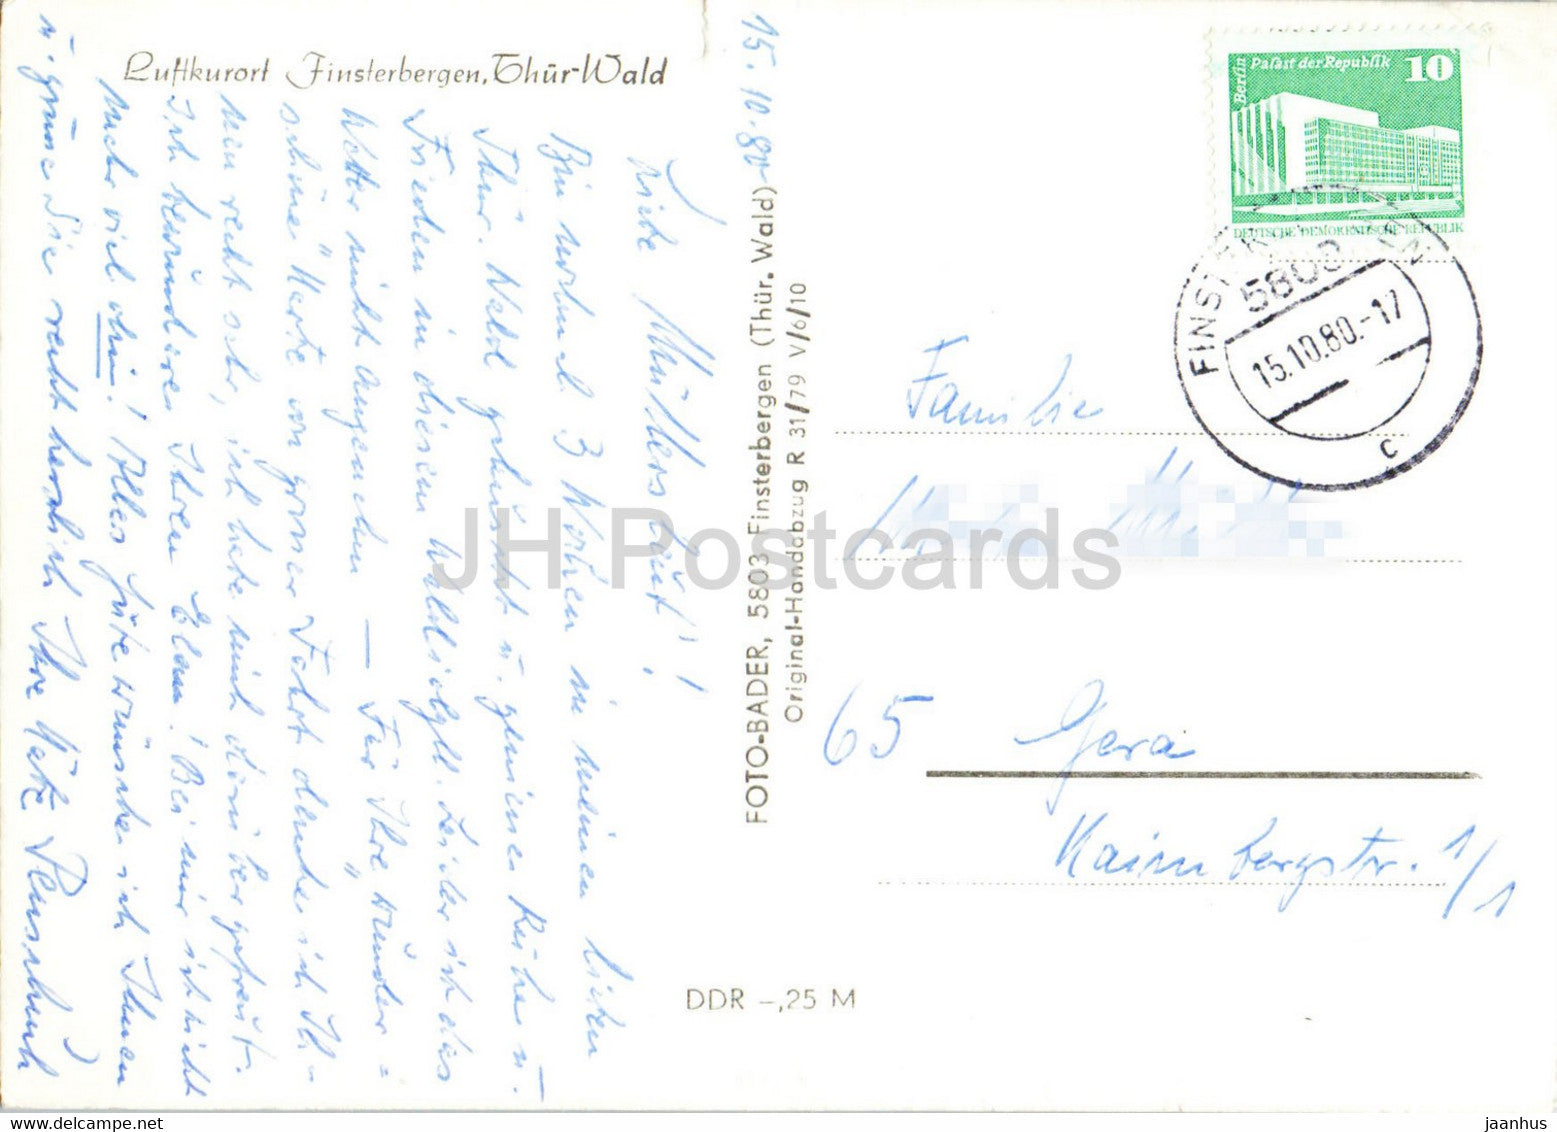 Luftkurort Finsterbergen, Thür-Wald
15.10.80
Liebe Müllersleut!
Bin wohl 3 Wochen in meinen lieben
Thür. Wald geheizt u. geniesse Ruhe u.
Frieden in diesem Waldidyll. Leider ist das
Wetter nicht angenehm — Für Ihre „wunder=
schöne" Karte von grosser Fahrt danke ich Ih-
nen recht sehr, ich habe mich darüber gefreut.
Ich bewundere Ihren Elan! Bei mir ist nicht
mehr viel drin! Alles Gute wünsche ich Ihnen
u. grüsse Sie recht herzlich Ihre Käte
FOTO-BADER, 5803 Finsterbergen (Thür. Wald)
Original-Handabzug R 31/79 V/6/10
Berlin Palast der Republik 10
DEUTSCHE DEMOKRATISCHE REPUBLIK
5803
15.10.80.-17
c
Familie
65 Gera
Kaimbergstr. 1/1
DDR -,25 M
JH Postcards
delcampe.net
jaanhus